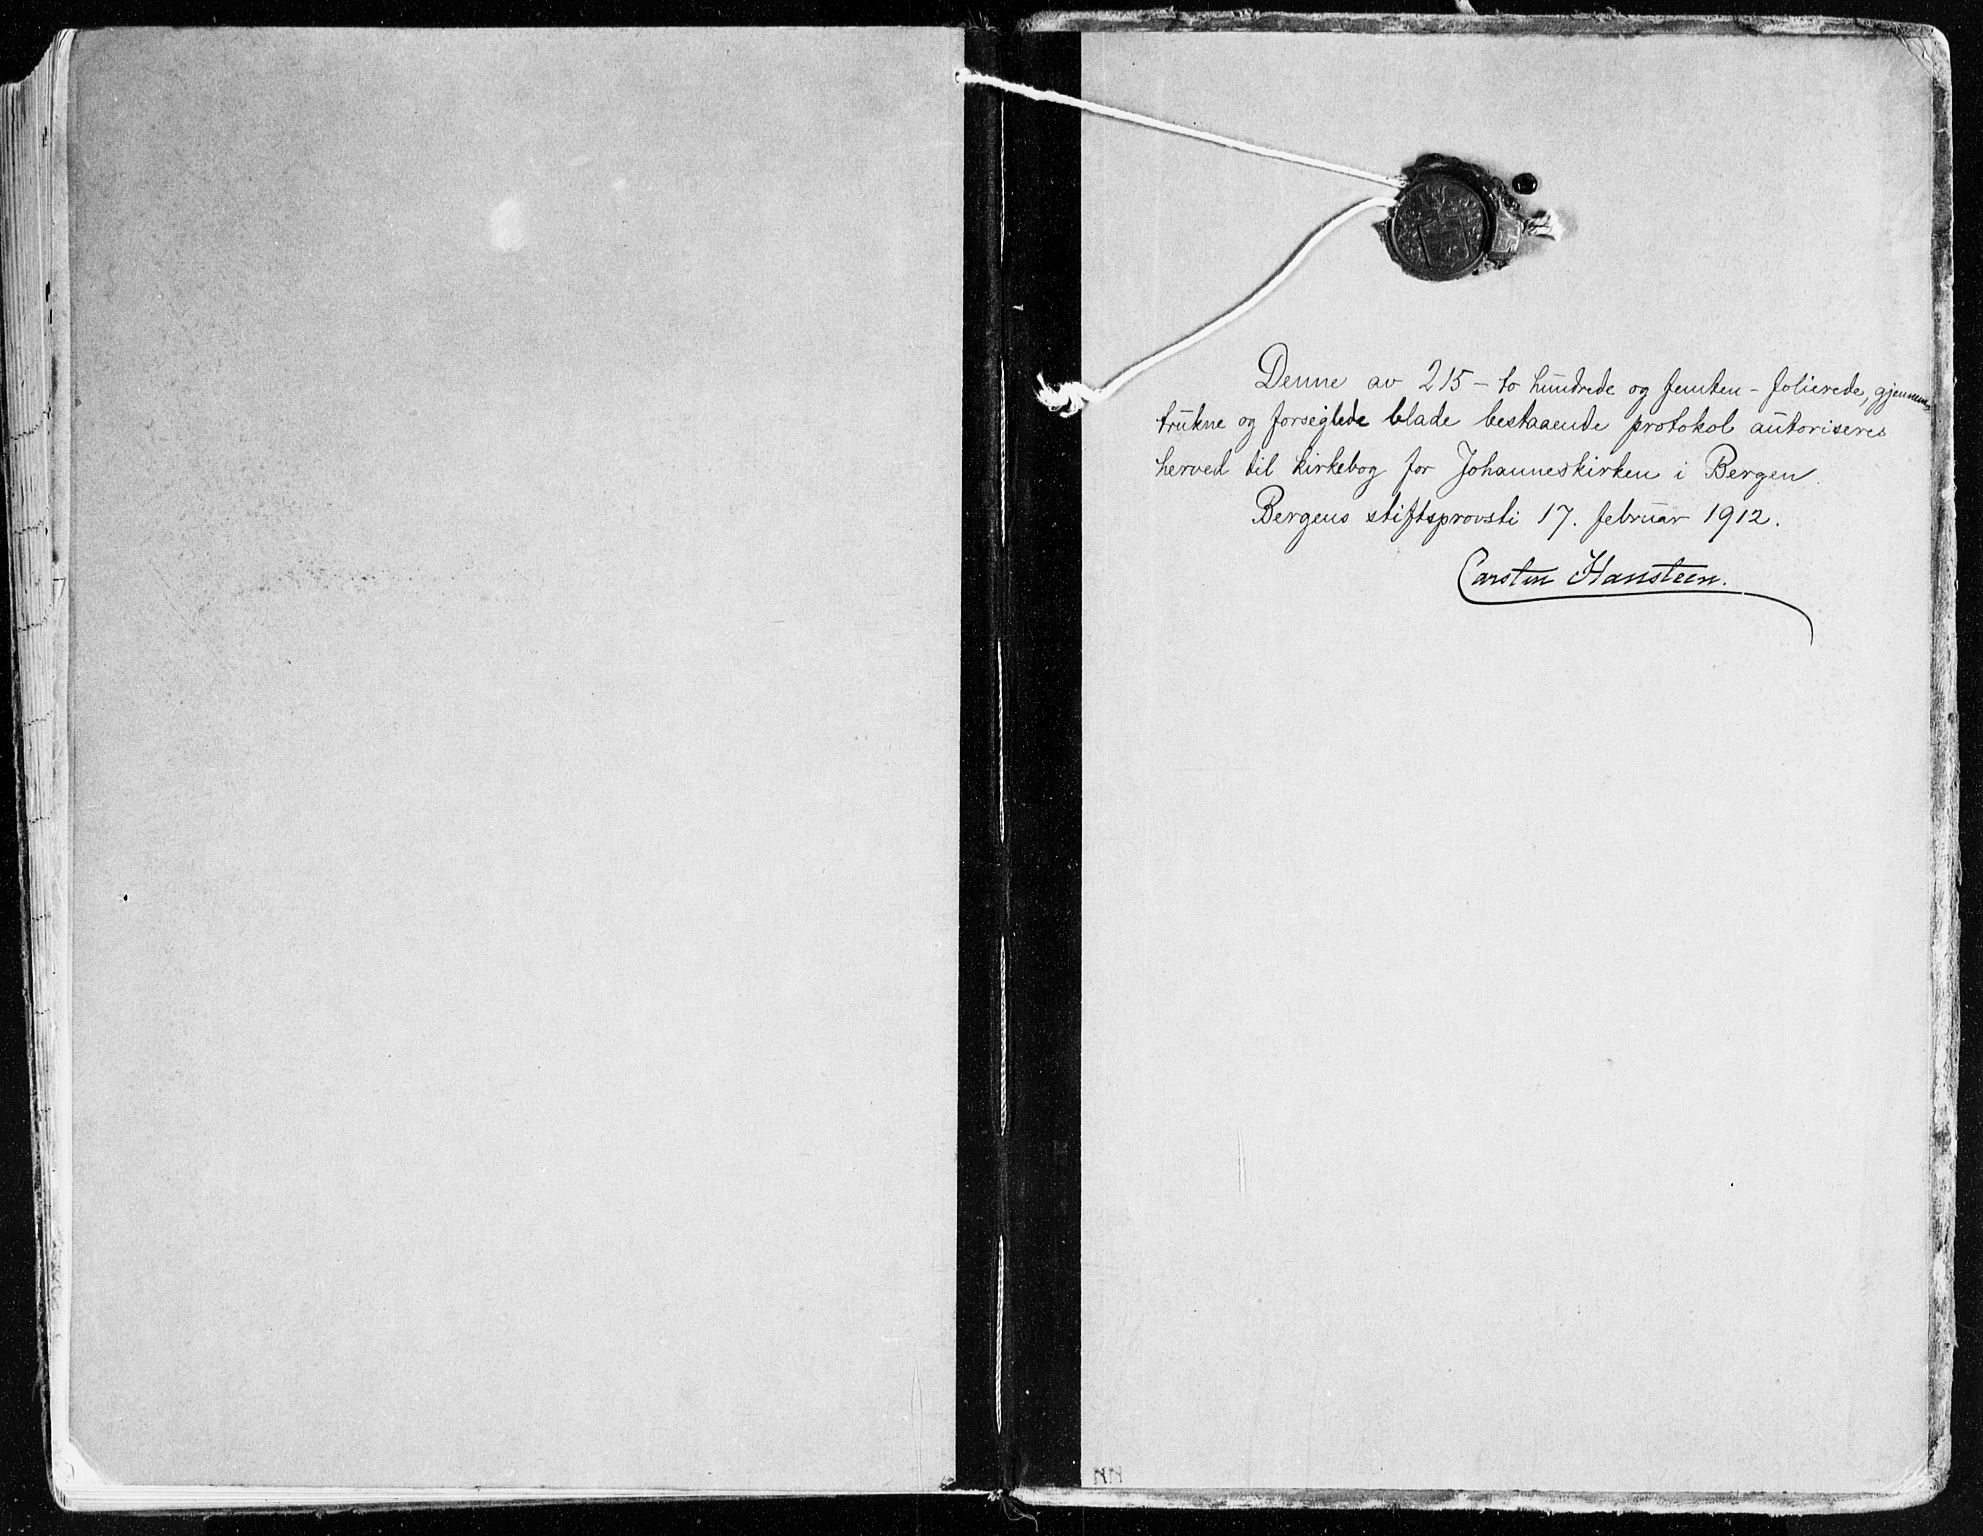 Denne av 215 – to hundrede og femten – folierede, gjennem-
trukne og forseglede blade bestaaende protokol autoriseres
herved til kirkebog for Johanneskirken i Bergen.
Bergens stiftsprovsti 17. februar 1912.
Carsten Hansteen.